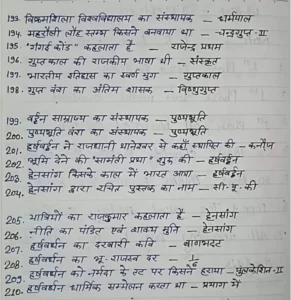 193. विक्रमशिला विश्वविद्यालय का संस्थापक - धर्मपाल
194. महरौली लौह स्तम्भ किसने बनवाया था - चन्द्रगुप्त-II
195. कहलाता है - राजेन्द्र प्रथम
196. गुप्तकाल की राजकीय भाषा थी - संस्कृत
197. भारतीय इतिहास का स्वर्ण युग - गुप्तकाल
198. गुप्त वंश का अंतिम शासक - विष्णुगुप्त
199. वर्धन साम्राज्य का संस्थापक - पुष्यभूति
200. पुष्यभूति वंश का संस्थापक - पुष्यभूति
201. हर्षवर्धन ने राजधानी थानेश्वर से कहाँ स्थापित की - कन्नौज
202. भूमि देने की 'सामंती प्रथा' शुरू की - हर्षवर्धन
203. हेनसांग किसके काल में भारत आया - हर्षवर्धन
204. हेनसांग द्वारा रचित पुस्तक का नाम - सी-यू-की
205. यात्रियों का राजकुमार कहलाता है - हेनसांग
206. नीति का पंडित एवं शाक्य मुनि - हेनसांग
207. हर्षवर्धन का दरबारी कवि - बाणभट्ट
208. हर्षवर्धन का भू-राजस्व दर - 1/6
209. हर्षवर्धन को नर्मदा के तट पर किसने हराया - पुलकेशिन-II
210. हर्षवर्धन धार्मिक सम्मेलन करता था - प्रयाग में